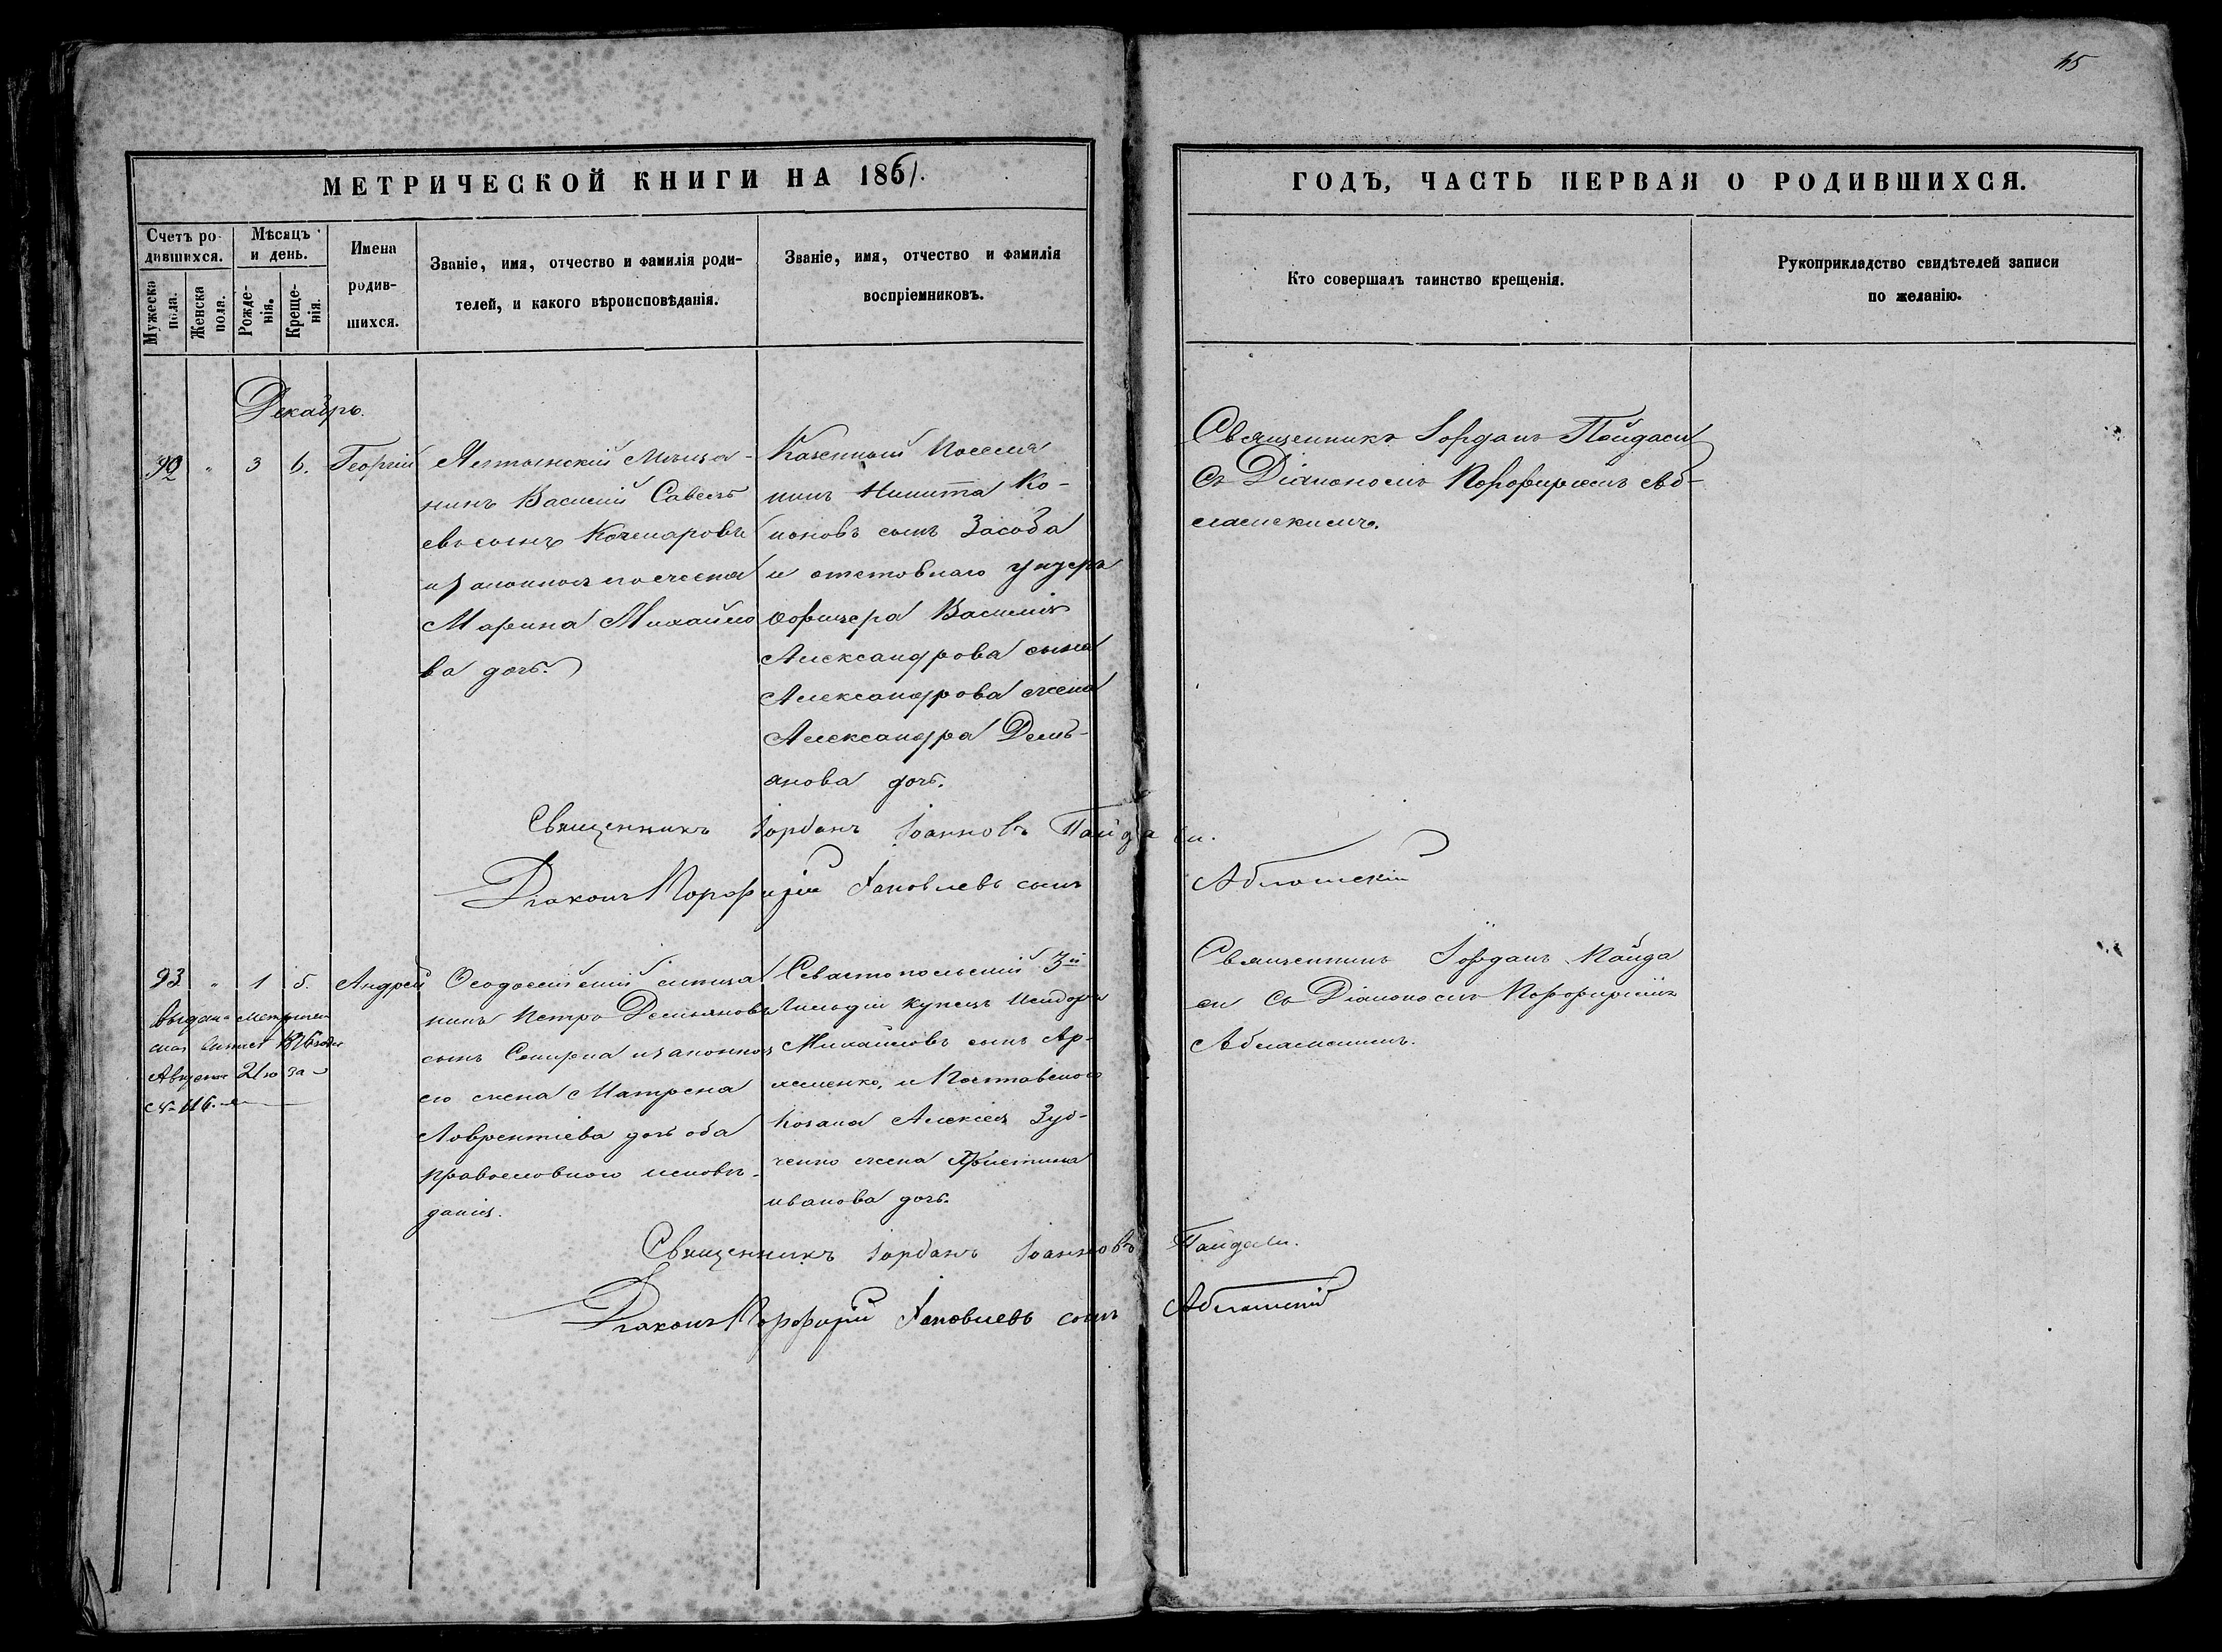 45
МЕТРИЧЕСКОЙ КНИГИ НА 1861.
ГОДЪ, ЧАСТЬ ПЕРВАЯ О РОДИВШИХСЯ.
Счетъ ро-
дившихся.
Мужеска
пола.
Женска
пола.
Мѣсяцъ
и день.
Рожде-
нія.
Креще-
нія.
Имена
родив-
шихся.
Званіе, имя, отчество и фамилія роди-
телей, и какого вѣроисповѣданія.
Званіе, имя, отчество и фамилія
воспріемниковъ.
Кто совершалъ таинство крещенія.
Рукоприкладство свидѣтелей записи
по желанію.
Декабрь.
92 " 3 6. Георгій
Ялтынскій Мѣща-
нинъ Василій Савелъ
евъ сынъ Кочемаровъ
и законная его жена
Марина Михайло
ва дочь.
Казенный Поселя
нинъ Никита Ко-
ноновъ сынъ Засоба
и отставнаго унтеръ
офицера Василія
Александрова сына
Александрова жена
Александра Демь-
янова дочь.
Священникъ Іорданъ Пайдаси
съ Діакономъ Порфиріемъ Аб-
ламскимъ.
Священникъ Іорданъ Іоанновъ Пайдаси.
Діаконъ Порфирій Яковлевъ сынъ Абламскій
93. " 1 5. Андрей
Выдана метричес
1876 года
Августа 21го за
№ 116.
Ѳеодосійскій мѣща
нинъ Петръ Демьяновъ
сынъ и законная
его жена Матрона
Лаврентіева дочь оба
православного исповѣ-
данія.
Севастопольскій 3й
гильдіи купецъ Исидоръ
Михайловъ сынъ Ар-
и Полтавского
Козака Алексея Зуб-
ченко жена Христина
иванова дочь.
Священникъ Іорданъ Пайда
си съ Діакономъ Порфиріемъ
Абламскимъ.
Священникъ Іорданъ Іоанновъ Пайдаси.
Діаконъ Порфирій Яковлевъ сынъ Абламскій